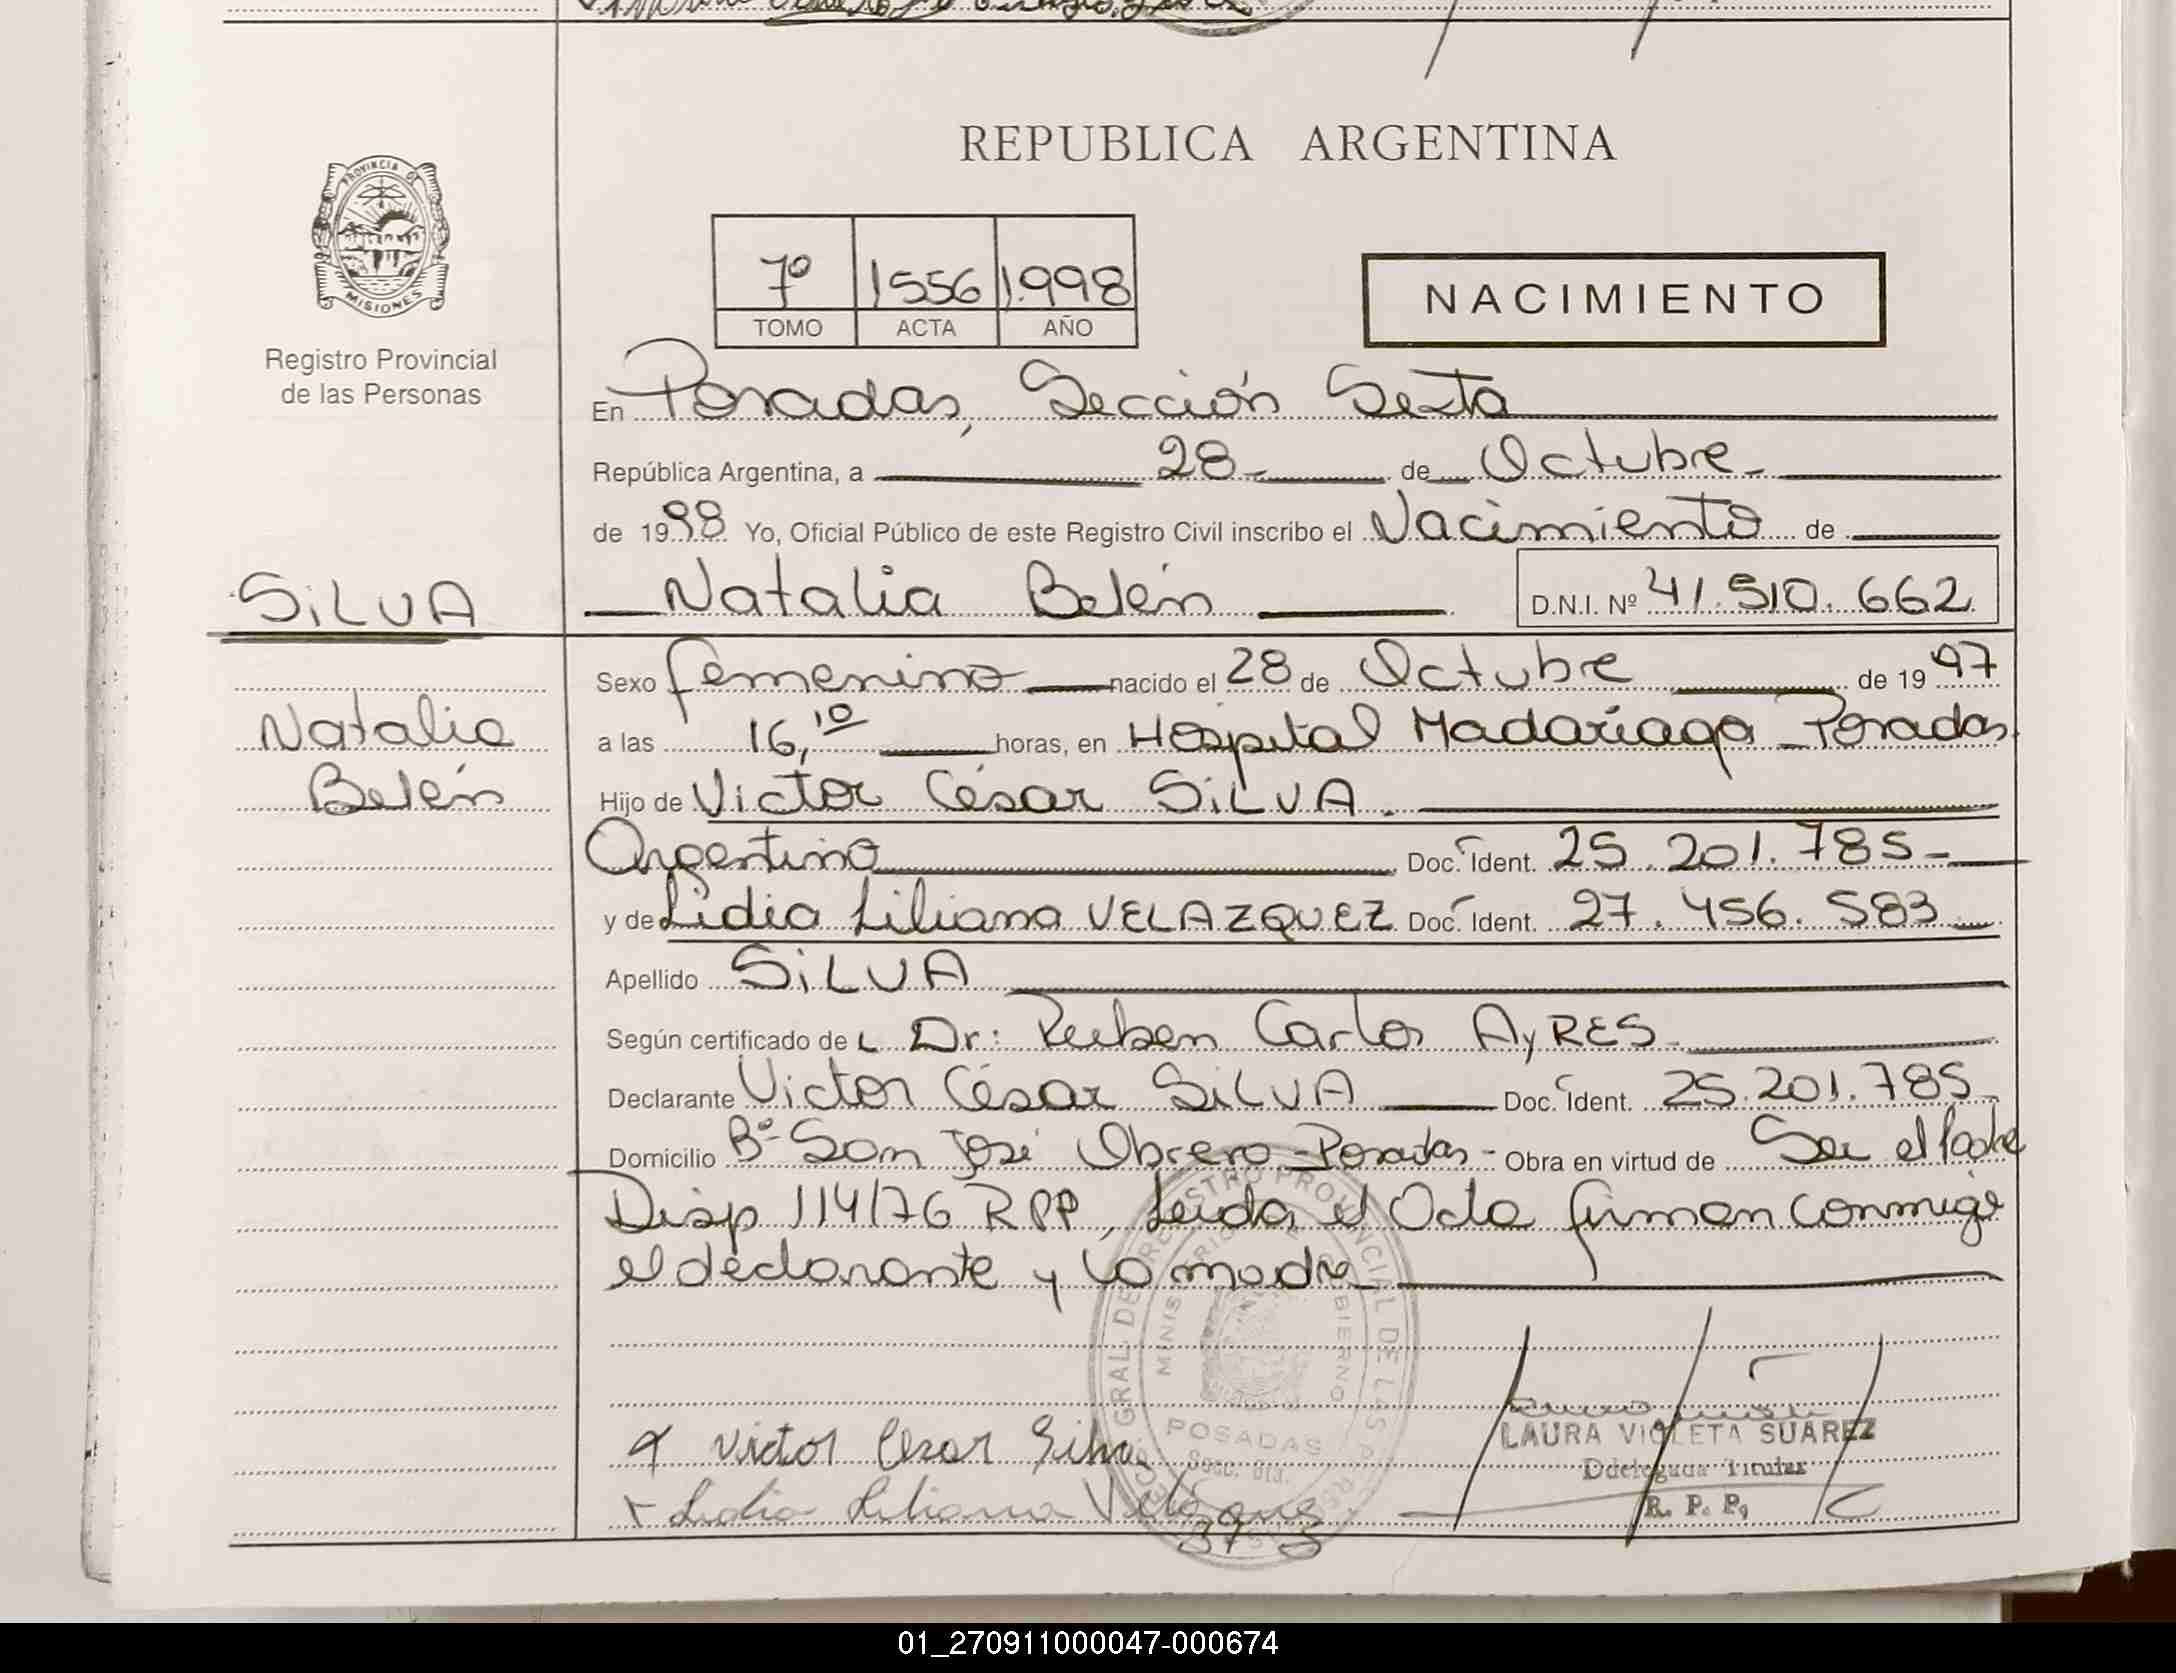 REPUBLICA ARGENTINA
PROVINCIA DE
MISIONES
Registro Provincial
de las Personas
7º 1556 1.998
TOMO ACTA AÑO
NACIMIENTO
En Posadas, Sección Sexta
República Argentina, a 28- de Octubre-
de 1998 Yo, Oficial Público de este Registro Civil inscribo el Nacimiento de
SiLVA
Natalia Belén D.N.I. Nº 41.510.662
Sexo femenino nacido el 28 de Octubre de 1997
Natalia
a las 16,10 horas, en Hospital Madariaga - Posadas.
Belén
Hijo de Victor César SiLVA.
Argentino Doc. Ident. 25.201.785-
y de Lidia Liliana VELAZQUEZ Doc. Ident. 27.456.583
Apellido SiLVA
Según certificado de L Dr: Ruben Carlos AyRES
Declarante Victor César SiLVA Doc. Ident. 25.201.785
Domicilio Bº San José Obrero - Posadas - Obra en virtud de Ser el Padre
Disp 114/76 RPP, Leida el Acta firman conmigo
el declarante y la madre
REGISTRO PROVINCIAL DE LAS
MINISTERIO DE GOBIERNO
POSADAS
Victor Cesar Silva
LAURA VIOLETA SUAREZ
Ddelegada Titular
Lidia Liliana
R. P. P.
01_270911000047-000674